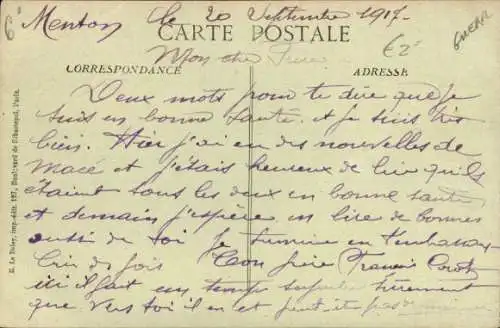 6e Menton le 20 Septembre 1917.
CARTE POSTALE
€2
GUERR
Mon cher Frère
CORRESPONDANCE
ADRESSE
Deux mots pour te dire que je
suis en bonne santé et je suis très
bien. Hier j'ai eu des nouvelles de
Macé et j'étais heureux de lire qu'ils
étaient tous les deux en bonne santé
et demain j'espère en lire de bonnes
aussi de toi Je termine en t'embrassant
bien des fois Ton frère Francis
ici il fait un temps
que vers toi il en est peut être pas de même
E. Le Deley, imp.-édit. 127, Boulevard de Sébastopol, Paris.